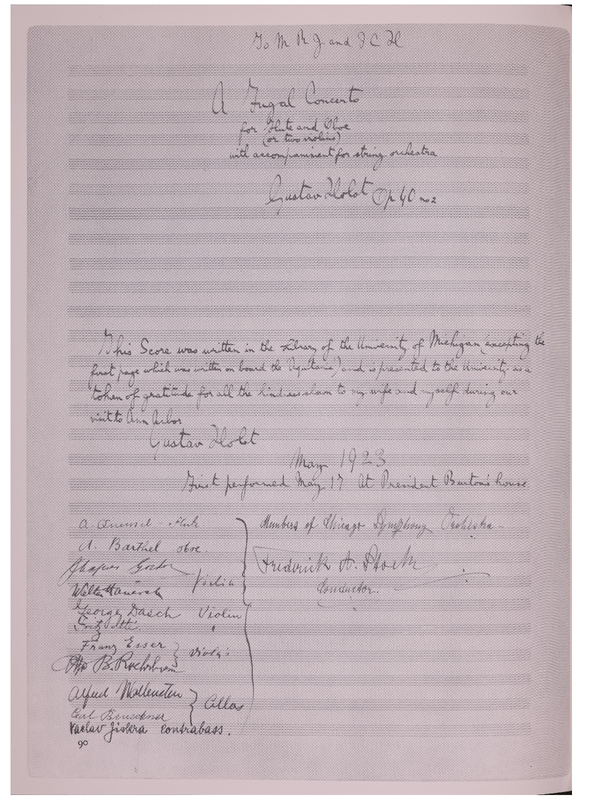 To M R J and I C H
A Fugal Concerto
for Flute and Oboe
(or two violins)
with accompaniment for string orchestra
Gustav Holst Op 40 no 2
This Score was written in the Library of the University of Michigan (excepting the
first page which was written on board the Aquitania) and is presented to the University as a
token of gratitude for all the kindness shown to my wife and myself during our
visit to Ann Arbor
Gustav Holst
May 1923
First performed May 17 At President Burton's house
A. Quensel - flute
Members of Chicago Symphony Orchestra -
A. Barthel oboe.
Frederick A. Stock
Conductor.
Violin
George Dasch Violin
Fritz Itte "
Franz Esser
Violas
Alfred Wallenstein
Cellos
Carl Bruckner
Vaclav Jiskra contrabass.
90